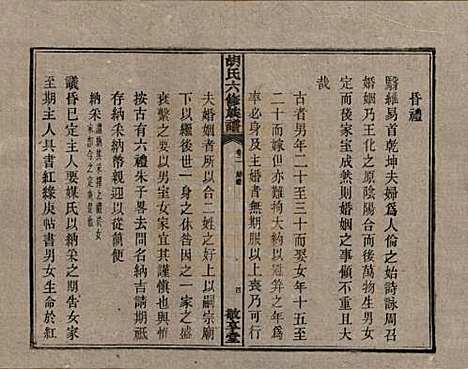 昏禮
翳維易首乾坤夫婦爲人倫之始詩詠周召
婚姻乃王化之原陰陽合而後萬物生男女
定而後家室成然則婚姻之事顧不重且大
哉
古者男年二十至三十而娶女年十五至
二十而嫁但亦難拘大納以冠笄之年爲
率必身及主婚者無期服以上喪乃可行
胡氏六修族譜
卷二
四
敬享堂
夫婚姻者所以合二姓之好上以嗣宗廟
下以繼後世一身之休咎因之一家之盛
衰繫之要以男室女家其義爲莫大焉
按古有六禮朱子畧去問名納吉請期祗
存納采納幣親迎以從簡便
納采
議昏已定主人要媒氏以納采之期告女家
至期主人具書紅綠庚帖書男女生命於紅